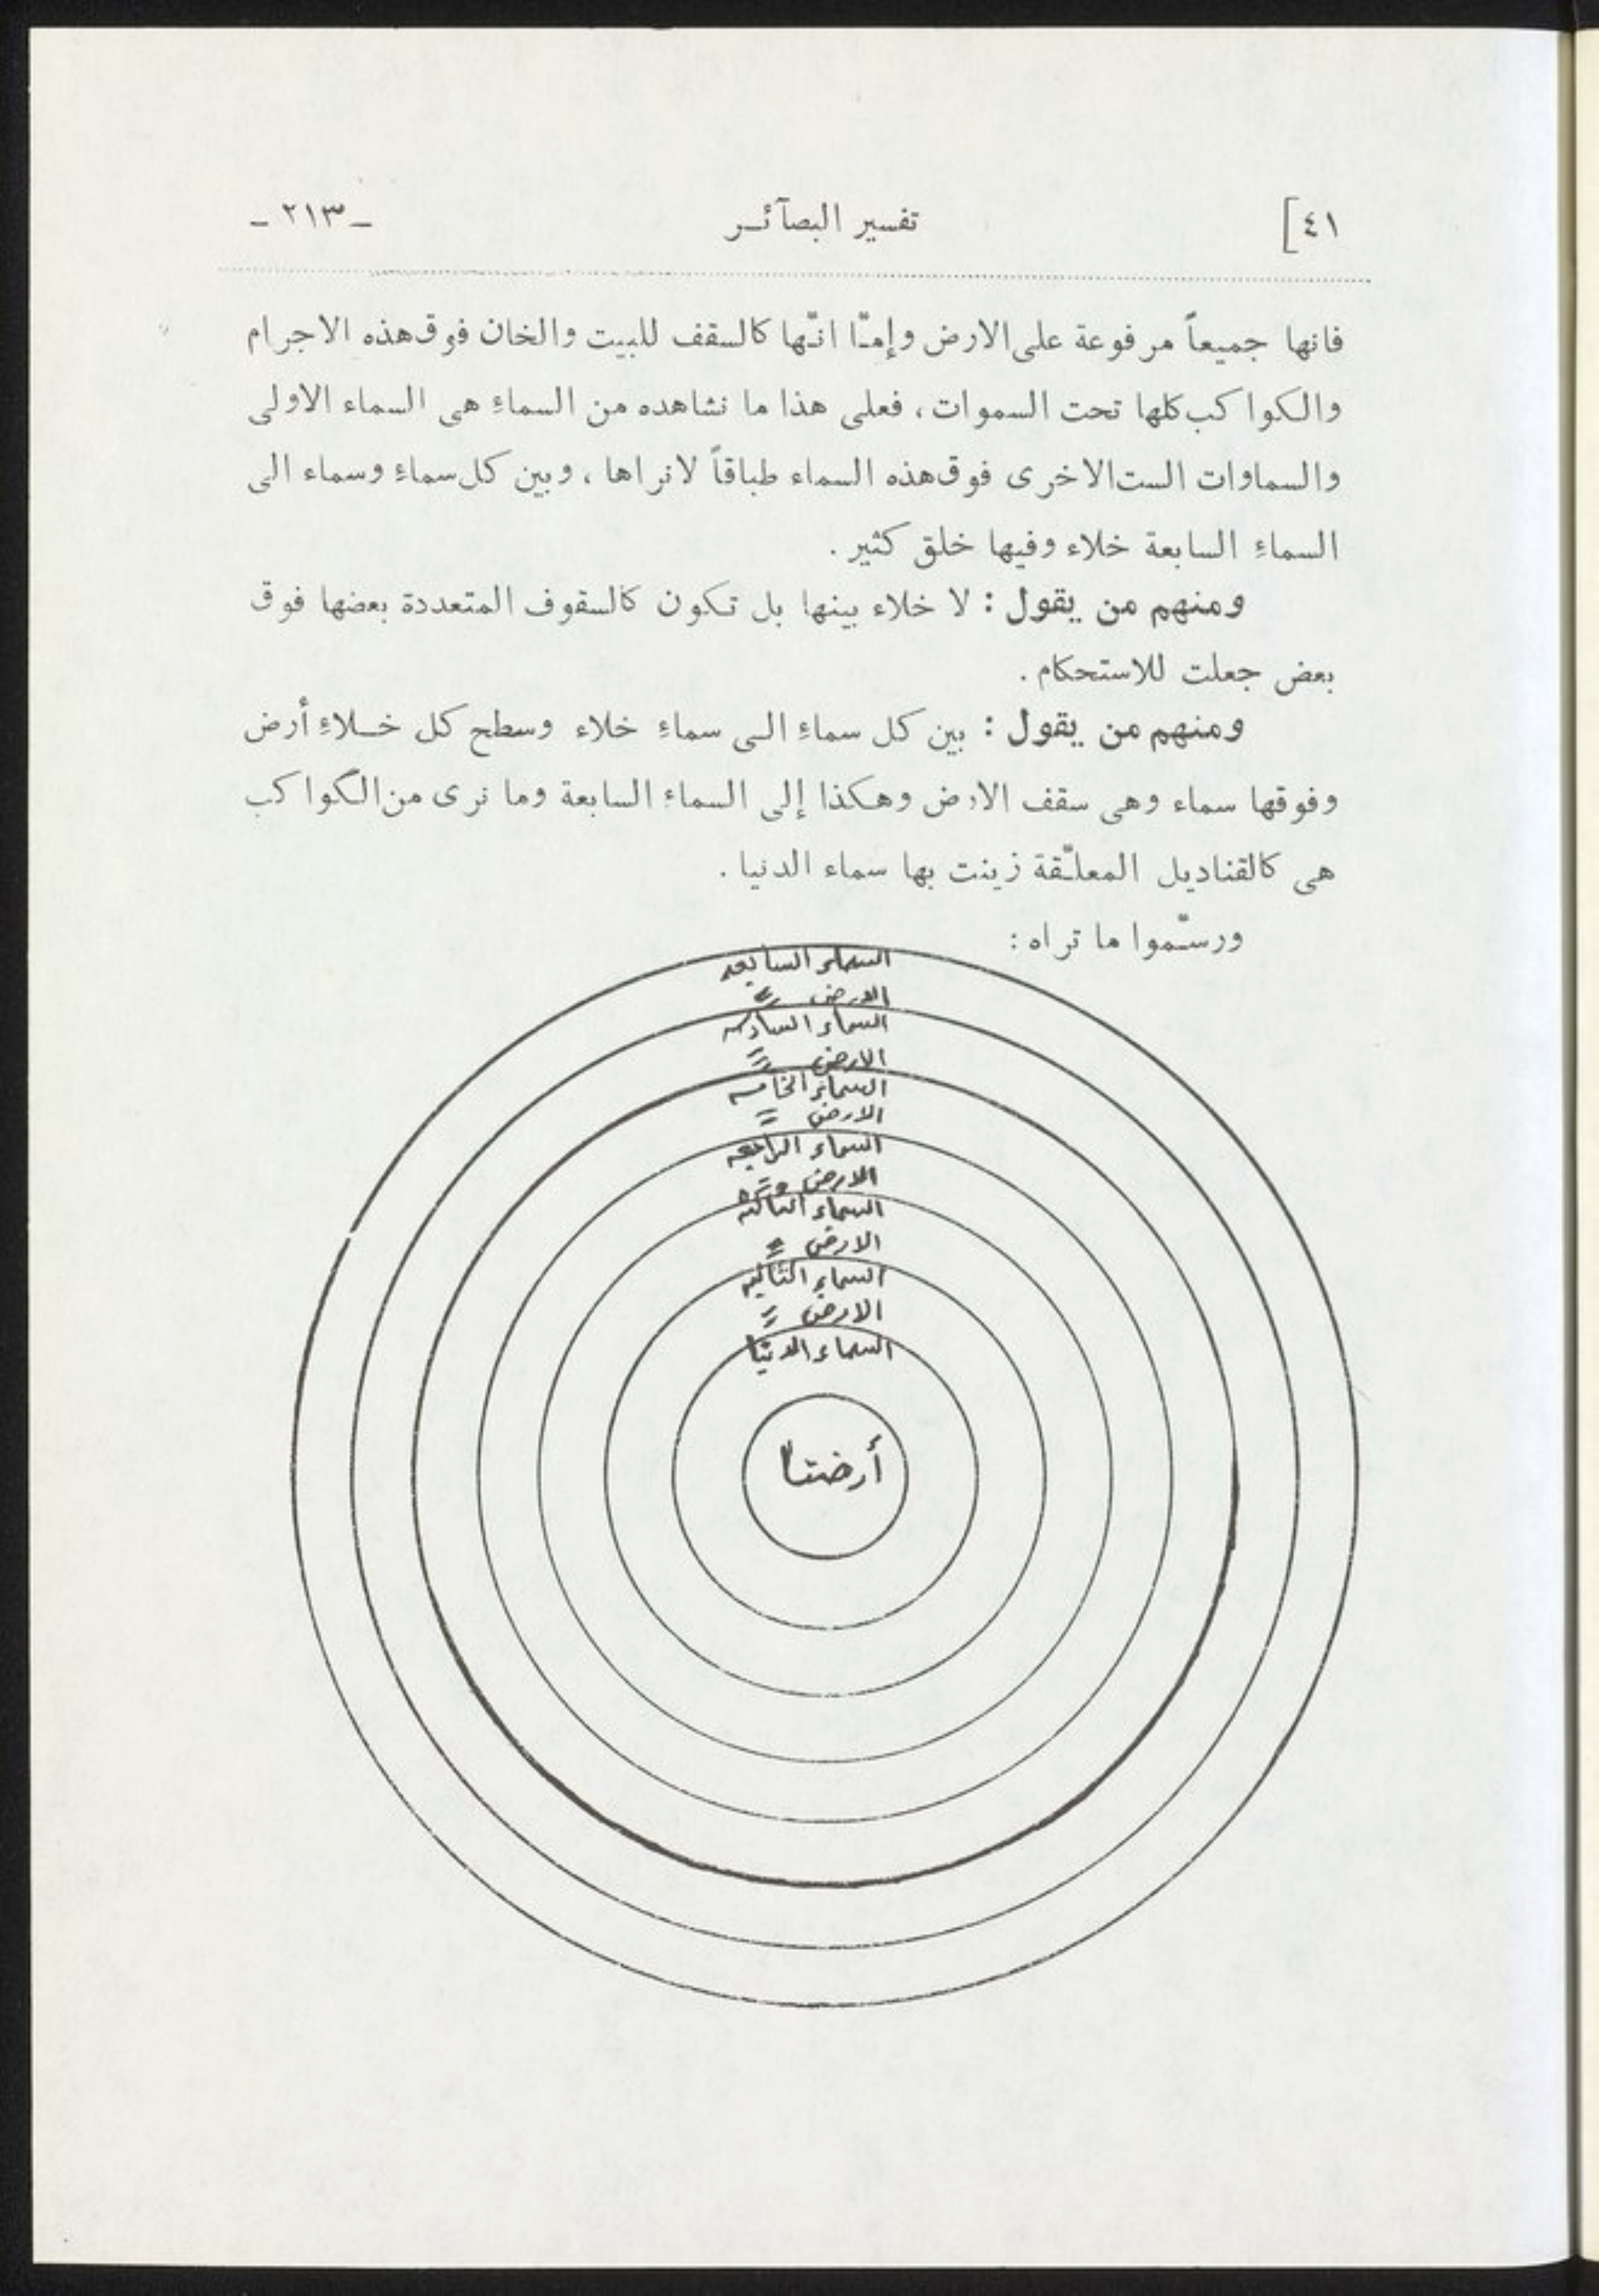 ٤١]
تفسير البصآئـر
ـ ٢١٣ ـ
فانها جميعاً مرفوعة على الارض وإمـّا انـّها كالسقف للبيت والخان فوق هذه الاجرام
والكواكب كلها تحت السموات ، فعلى هذا ما نشاهده من السماءِ هى السماء الاولى
والسماوات الست الاخرى فوق هذه السماء طباقاً لانراها ، وبين كل سماءِ وسماء الى
السماءِ السابعة خلاء وفيها خلق كثير .
ومنهم من يقول : لا خلاء بينها بل تكون كالسقوف المتعددة بعضها فوق
بعض جعلت للاستحكام .
ومنهم من يقول : بين كل سماءِ الـى سماءِ خلاء وسطح كل خـلاءِ أرض
وفوقها سماء وهى سقف الارض وهكذا إلى السماءِ السابعة وما نرى من الكواكب
هى كالقناديل المعلـّقة زينت بها سماء الدنيا .
ورسـّموا ما تراه :
السماء السابعه
الارض =
السماء السادسه
الارض =
السماء الخامسه
الارض =
السماء الرابعه
الارض
السماء الثالثه
الارض =
السماء الثانيه
الارض =
السماء الدنيا
أرضنا